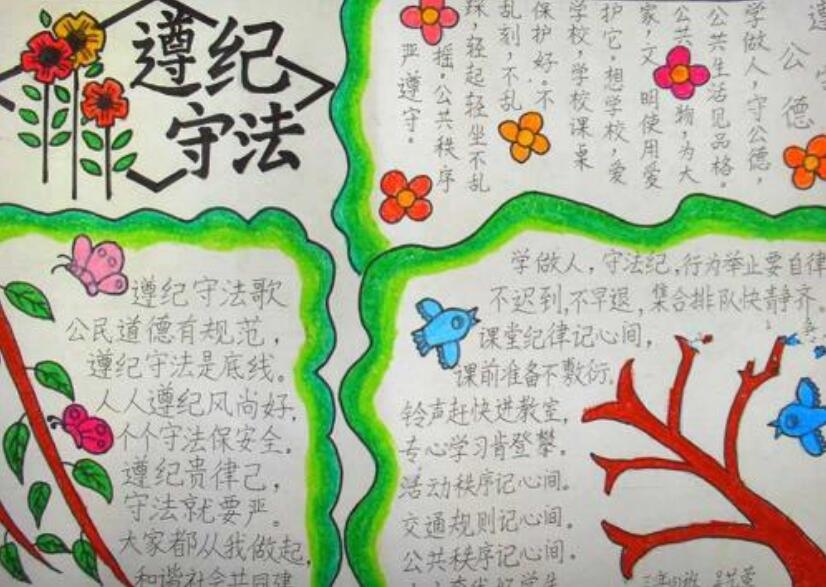 遵纪
守法
公德
学做人,守公德,
公共生活见品格。
公共 物,为大
家,文明使用爱
护它。想学校,爱
学校,学校课桌
保护好。不
乱刻,不乱
踩,轻起轻坐不乱
摇,公共秩序
严遵守。
遵纪守法歌
公民道德有规范,
遵纪守法是底线。
人人遵纪风尚好,
个个守法保安全。
遵纪贵律己,
守法就要严。
大家都从我做起,
和谐社会共同建
学做人,守法纪,行为举止要自律
不迟到,不早退,集合排队快静齐。
课堂纪律记心间,
课前准备不敷衍。
铃声赶快进教室,
专心学习肯登攀。
活动秩序记心间。
交通规则记心间。
公共秩序记心间。